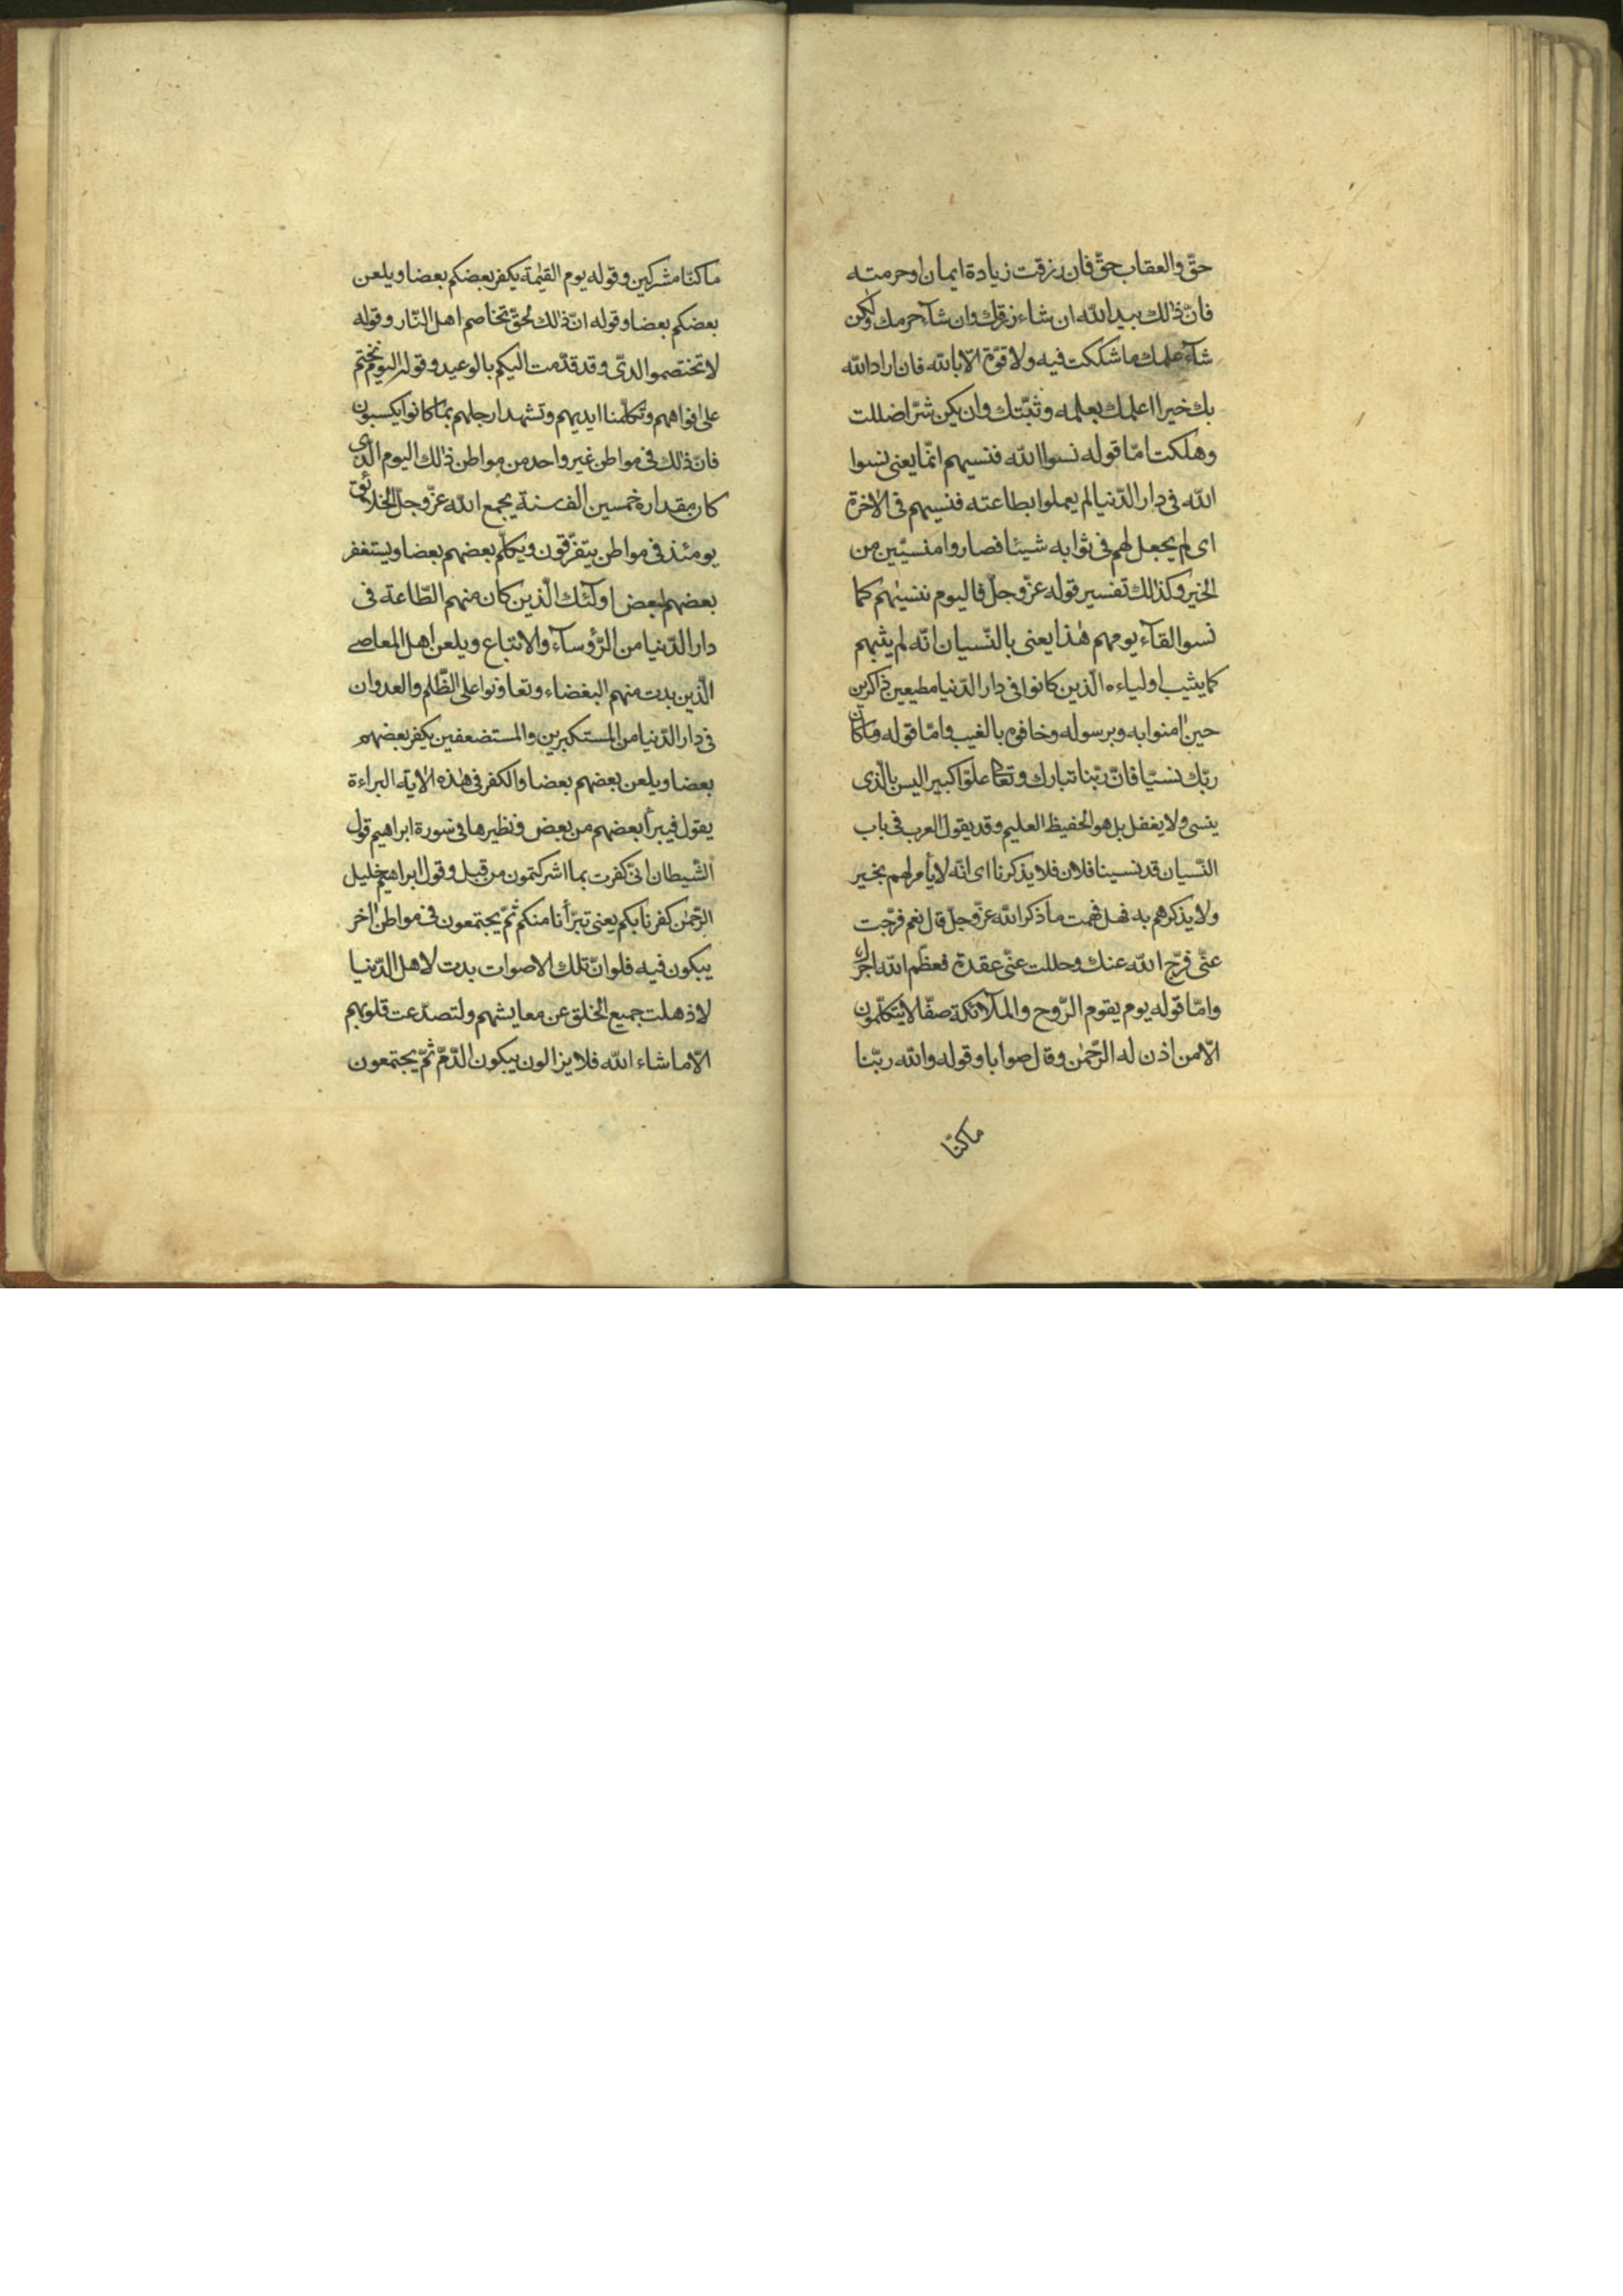 حقّ والعقاب حقّ فان رزقت زيادة ايمان او حرمته
فانّ ذٰلك بيد اللّه ان شاء رزقك وان شآء حرمك ولٰكن
شآء علمك ما شككت فيه ولا قوّة الّا باللّه فان اراد اللّه
بك خيرا اعلمك بعلمه وثبّتك وان يكن شرّا ضللت
وهلكت امّا قوله نسوا اللّه فنسيهم انّما يعنى نسوا
اللّه فى دار الدّنيا لم يعملوا بطاعته فنسيهم فى الاٰخرة
اى لم يجعل لهم فى ثوابه شيئا فصاروا منسيّين من
الخير وكذٰلك تفسير قوله عزّ وجلّ فاليوم ننسيٰهم كما
نسوا لقآء يومهم هٰذا يعنى بالنّسيان انّه لم يثبهم
كما يثيب اولياءه الّذين كانوا فى دار الدّنيا مطيعين ذاكرين
حين اٰمنوا به وبرسوله وخافوه بالغيب وامّا قوله وما كان
ربّك نسيّا فانّ ربّنا تبارك وتعالى علوّا كبيرا ليس بالّذى
ينسى ولا يغفل بل هو الحفيظ العليم وقد يقول العرب فى باب
النّسيان قد نسينا فلان فلا يذكرنا اى انّه لا يأمر لهم بخير
ولا يذكرهم به فهل فهمت ما ذكر اللّه عزّ وجلّ قال نعم فرّجت
عنّى فرّج اللّه عنك وحللت عنّى عقدة فعظّم اللّه اجرك
وامّا قوله يوم يقوم الرّوح والملآئكة صفّا لا يتكلّمون
الّا من اذن له الرّحمٰن وقال صوابا وقوله واللّه ربّنا
ما كنّا
ما كنّا مشركين وقوله يوم القيٰمة يكفر بعضكم بعضا ويلعن
بعضكم بعضا وقوله انّ ذٰلك لحقّ تخاصم اهل النّار وقوله
لا تختصموا لدىّ وقد قدّمت اليكم بالوعيد وقوله اليوم نختم
على افواههم وتكلّمنا ايديهم وتشهد ارجلهم بما كانوا يكسبون
فانّ ذٰلك فى مواطن غير واحد من مواطن ذٰلك اليوم الّذى
كان مقداره خمسين الف سنة يجمع اللّه عزّ وجلّ الخلائق
يومئذ فى مواطن يتفرّقون ويكلّم بعضهم بعضا ويستغفر
بعضهم لبعض اولٓئك الّذين كان منهم الطّاعة فى
دار الدّنيا من الرّؤسآء والاتباع ويلعن اهل المعاصى
الّذين بدت منهم البغضاء وتعاونوا على الظّلم والعدوان
فى دار الدّنيا من المستكبرين والمستضعفين يكفر بعضهم
بعضا ويلعن بعضهم بعضا والكفر فى هٰذه الاٰية البراءة
يقول فيبرأ بعضهم من بعض ونظيرها فى سورة ابراهيم قول
الشّيطان انّى كفرت بما اشركتمون من قبل وقول ابراهيم خليل
الرّحمٰن كفرنا بكم يعنى تبرّأنا منكم ثمّ يجتمعون فى مواطن اٰخر
يبكون فيه فلو انّ تلك الاصوات بدت لاهل الدّنيا
لاذهلت جميع الخلق عن معايشهم ولتصدّعت قلوبهم
الّا ما شاء اللّه فلا يزالون يبكون الدّمّ ثمّ يجتمعون